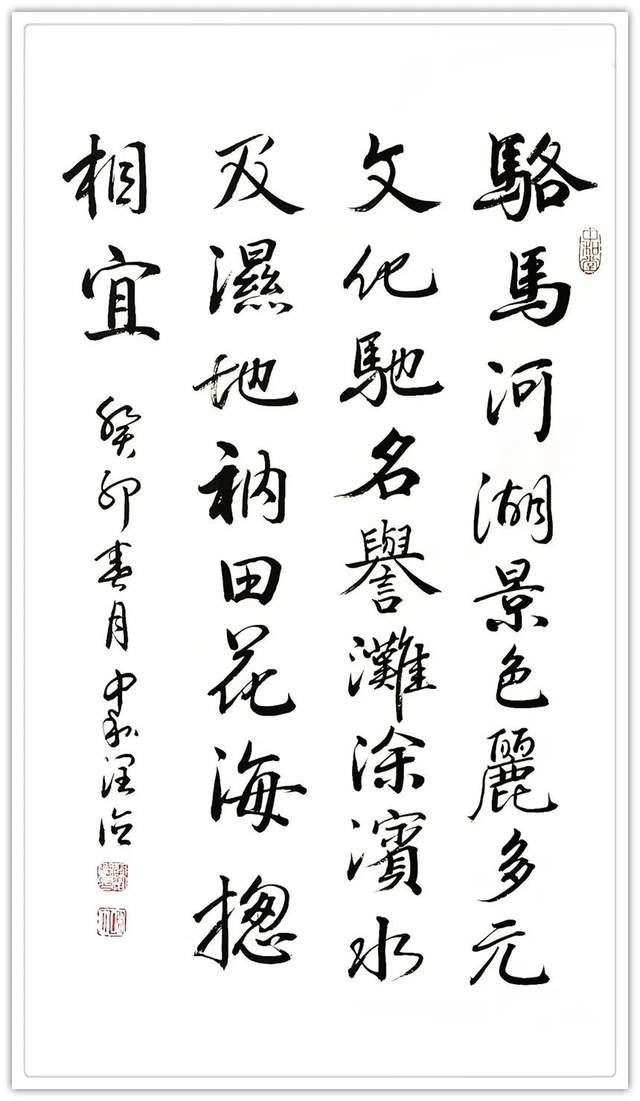 駱馬河湖景色麗多元
文化馳名譽灘涂濱水
及濕地衲田花海揔
相宜
癸卯春月中和潤德
中和堂